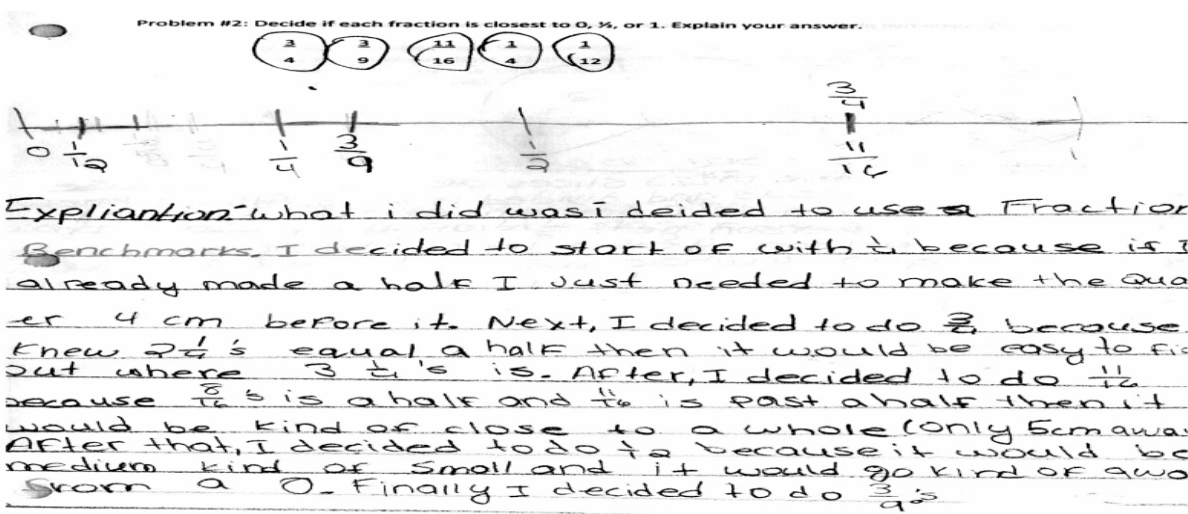 Problem #2: Decide if each fraction is closest to 0, ½, or 1. Explain your answer.
3/4 3/9 11/16 1/4 1/12
3/4
0 1/12 1/4 3/9 1/2 11/16
Expliantion-what i did was i deided to use a Fraction
Benchmarks. I decided to start of with 1/4 because if I
already made a half I Just needed to make the Qua
er 4 cm before it. Next, I decided to do 3/4 because
Knew 2 1/4's equal a half then it would be easy to fi
out where 3 1/4's is. After, I decided to do 11/16
because 8/16's is a half and 11/16 is past a half then it
would be kind of close to a whole (only 5cm awa
After that, I decided to do 1/12 because it would be
medium kind of small and it would go kind of awa
From a 0. Finally I decided to do 3/9's